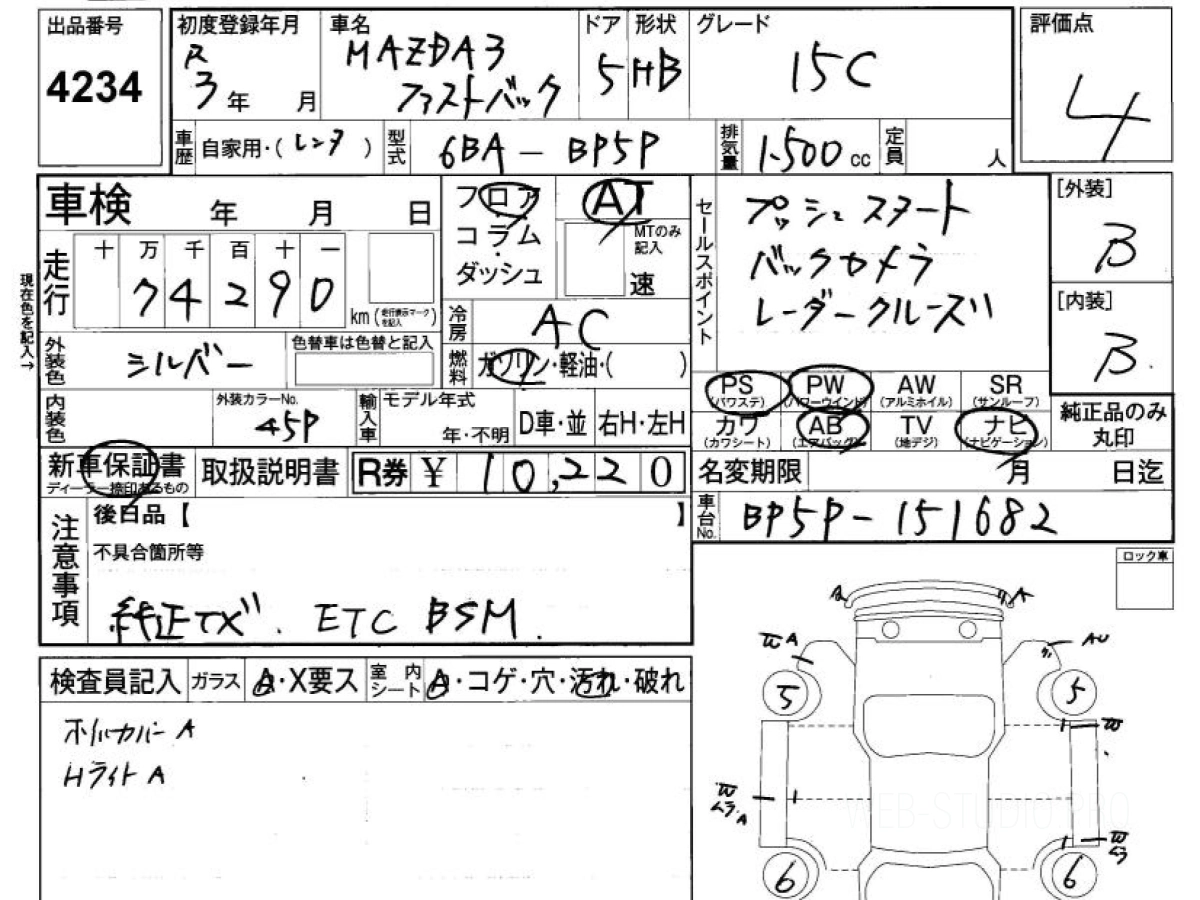 出品番号
4234
初度登録年月
R
3年 月
車名
MAZDA3
ファストバック
ドア
5
形状
HB
グレード
15C
評価点
4
車歴
自家用・(レンタ)
型式
6BA-BP5P
排気量
1,500cc
定員
人
車検 年 月 日
フロア
コラム・
ダッシュ
AT
MTのみ
記入
速
セールスポイント
プッシュスタート
バックカメラ
レーダークルーズ
[外装]
B
[内装]
B
現在色を記入→
走行
十 万 千 百 十 一
7 4 2 9 0
km(走行表示マークを記入)
冷房
AC
燃料
ガソリン・軽油・( )
外装色
シルバー
色替車は色替と記入
内装色
外装カラーNo.
45P
輸入車
モデル年式
年・不明
D車・並
右H・左H
PS
(パワステ)
PW
(パワーウインド)
AW
(アルミホイル)
SR
(サンルーフ)
カワ
(カワシート)
AB
(エアバッグ)
TV
(地デジ)
ナビ
(ナビゲーション)
純正品のみ
丸印
新車保証書
ディーラー捺印あるもの
取扱説明書
R券 ¥ 10,220
名変期限 月 日迄
車台No.
BP5P-151682
注意事項
後日品【 】
不具合箇所等
純正TV. ETC BSM.
ロック車
検査員記入
ガラス
A・X要ス
室内シート
A・コゲ・穴・汚れ・破れ
ホイルカバー A
Hライト A
A
A
W A
AU
5
5
W
W
ムラ A
W
ムラ
6
6
WEB-STUDIO PRO